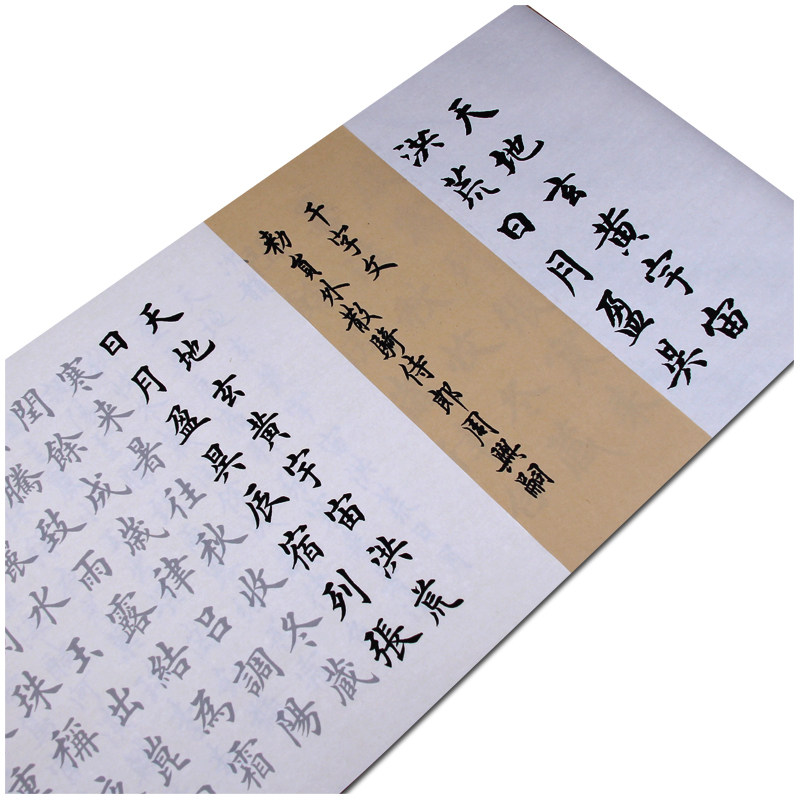 天地玄黄宇宙
洪荒日月盈昃
千字文
勅員外散騎侍郎周興嗣
天地玄黄宇宙洪荒
日月盈昃辰宿列張
寒来暑往秋收冬蔵
閏餘成歲律吕調陽
騰致雨露結為霜
水玉出崑
珠稱
重